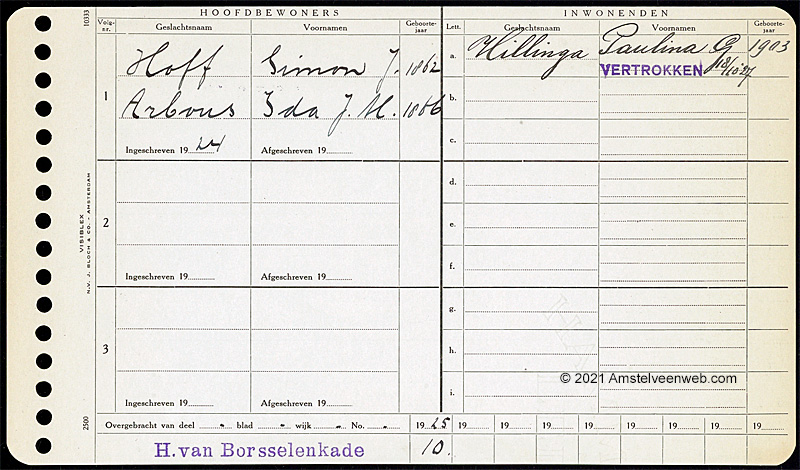 HOOFDBEWONERS
Volg-nr. Geslachtsnaam Voornamen Geboorte-jaar
1
Hoff Simon J. 1862
Arbous Ida J. M. 1866
Ingeschreven 1924 Afgeschreven 19
2
Ingeschreven 19 Afgeschreven 19
3
Ingeschreven 19 Afgeschreven 19
INWONENDEN
Lett. Geslachtsnaam Voornamen Geboorte-jaar
a. Hillinga Paulina G 1903
VERTROKKEN 18/10'27
b.
c.
d.
e.
f.
g.
h.
i.
Overgebracht van deel " blad " wijk " No. " 1925 19 19 19 19 19 19 19 19
H. van Borsselenkade 10.
10333
VISIBLEX
N.V. J. BLOCH & CO. - AMSTERDAM
2500
© 2021 Amstelveenweb.com